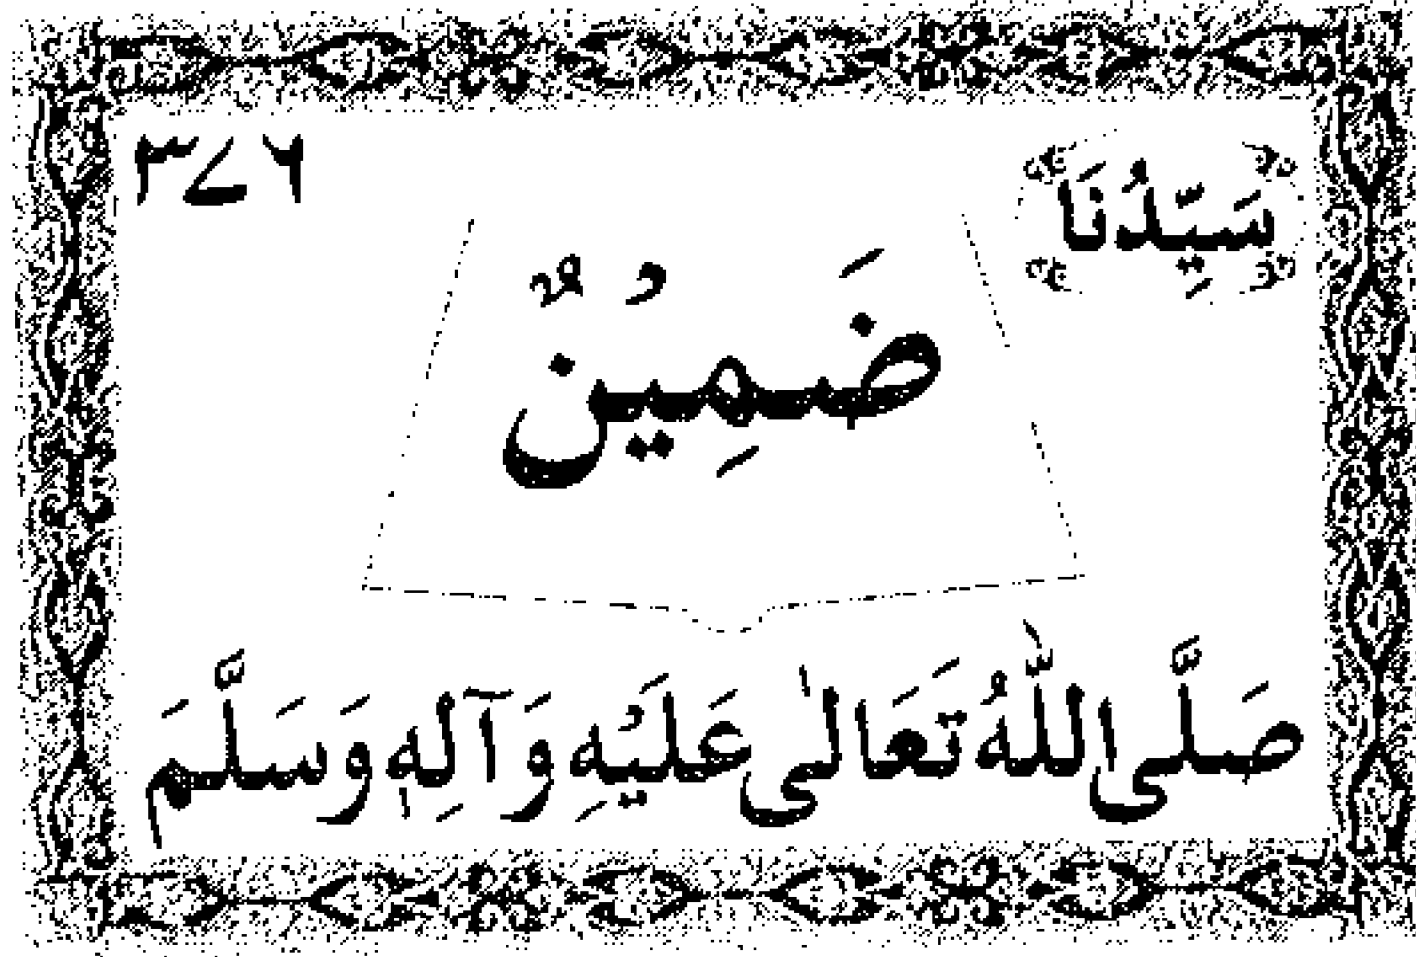 سَيِّدُنَا ۳۷۶
ضَمِيْنٌ
صَلَّى اللّٰهُ تَعَالٰى عَلَيْهِ وَآلِهٖ وَسَلَّمَ